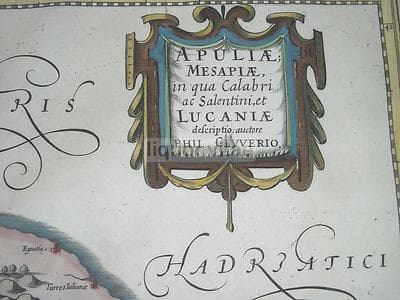 APULIÆ;
MESAPIÆ,
in qua Calabri
ac Salentini, et
LUCANIÆ
descriptio: auctore
PHIL CLVVERIO
RIS
Egnatia
Turres Iulianæ
HADRIATICI